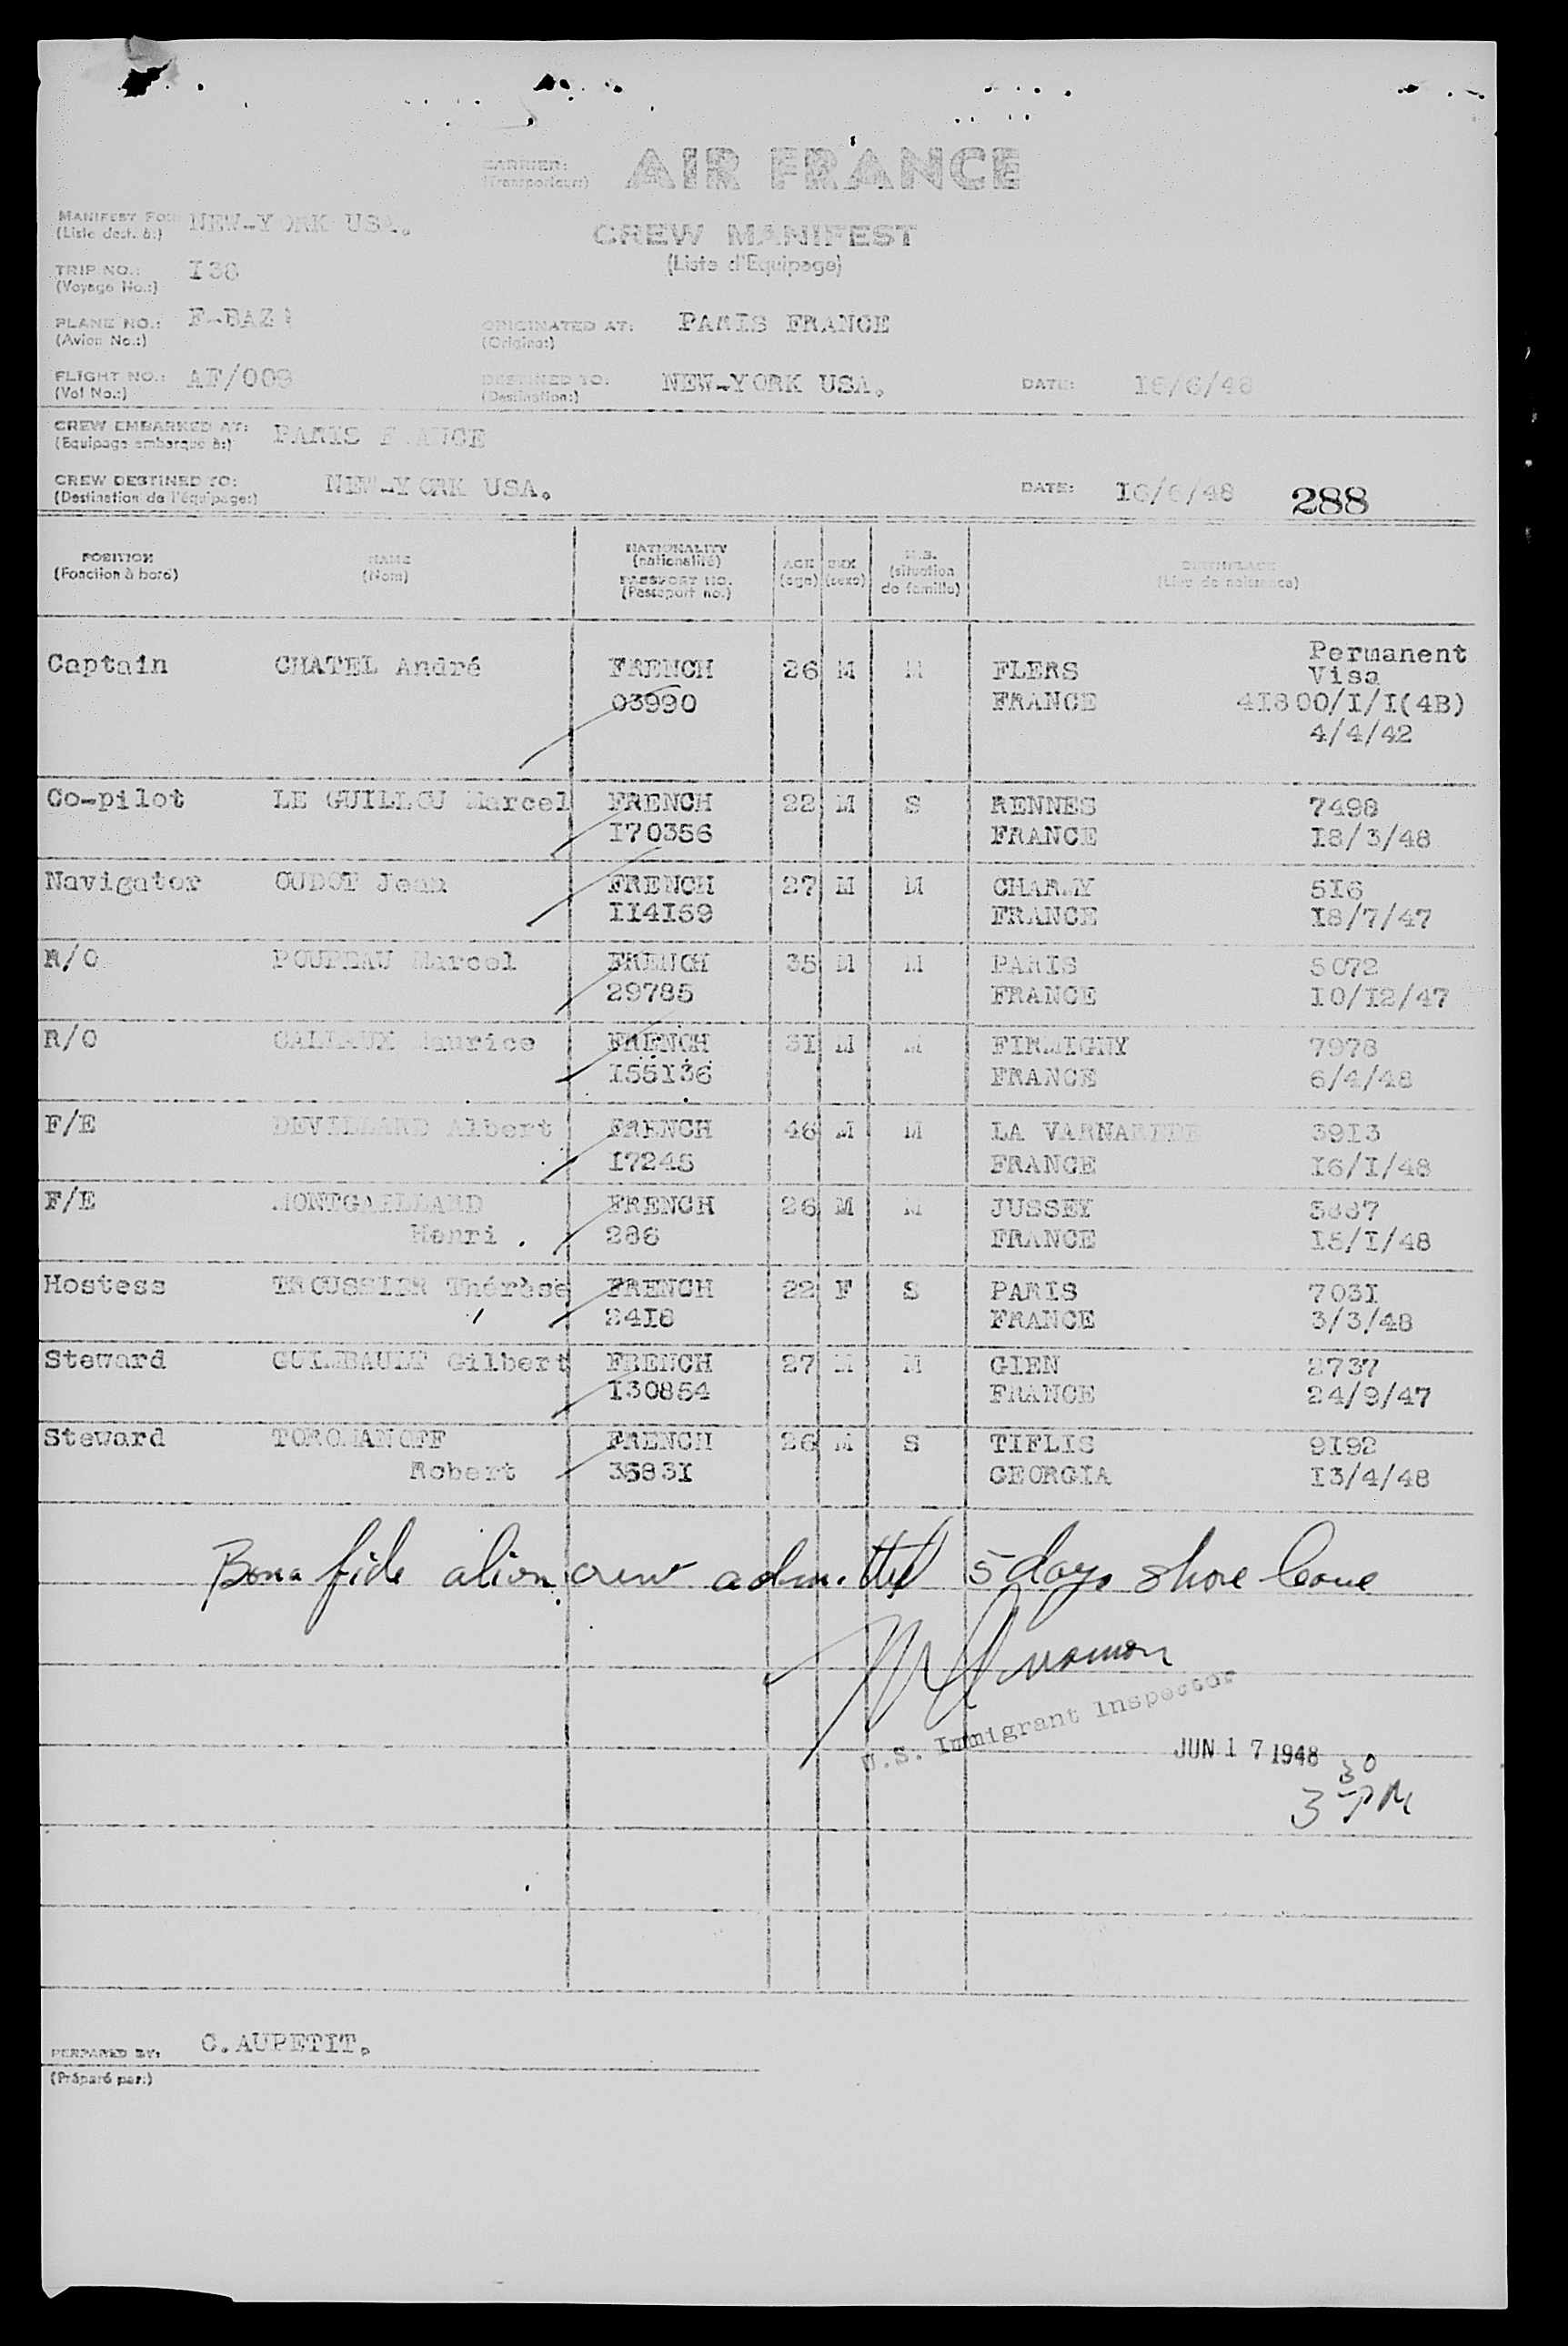 CARRIER: AIR FRANCE
(Transporteur:)
MANIFEST FOR: NEW-YORK USA.
(Liste dest. à:)
CREW MANIFEST
(Liste d'Equipage)
TRIP NO.: I36
(Voyage No.:)
PLANE NO.: F-BAZ
(Avion No.:)
ORIGINATED AT: PARIS FRANCE
(Origine:)
FLIGHT NO.: AF/009
(Vol No.:)
DESTINED TO: NEW-YORK USA. DATE: I6/6/48
(Destination:)
CREW EMBARKED AT: PARIS FRANCE
(Equipage embarqué à:)
CREW DESTINED TO: NEW-YORK USA. DATE: I6/6/48 288
(Destination de l'équipage:)
POSITION NAME NATIONALITY AGE SEX M.S. BIRTHPLACE
(Fonction à bord) (Nom) (nationalité) (age) (sexe) (situation de famille) (Lieu de naissance)
PASSPORT NO.
(Passeport no.)
Captain CHATEL André FRENCH 26 M M FLERS Permanent
Visa
03990 FRANCE 41800/I/I(4B)
4/4/42
Co-pilot LE GUILLOU Marcel FRENCH 22 M S RENNES 7498
I70356 FRANCE I8/3/48
Navigator OUDOT Jean FRENCH 27 M M CHARMY 5I6
II4I59 FRANCE I8/7/47
R/O Marcel FRENCH 35 M M PARIS 5072
29785 FRANCE I0/I2/47
R/O Maurice FRENCH 3I M M FIRMIGNY 7978
I55I36 FRANCE 6/4/48
F/E DEVILLARD Albert FRENCH 46 M M LA 39I3
I7245 FRANCE I6/I/48
F/E MONTGAILLARD FRENCH 26 M M JUSSEY
Henri 286 FRANCE I5/I/48
Hostess TROUSSIER Thérèse FRENCH 22 F S PARIS 703I
24I8 FRANCE 3/3/48
Steward GUIMBAULT Gilbert FRENCH 27 M M GIEN 2737
I30854 FRANCE 24/9/47
Steward TOROMANOFF FRENCH 26 M S TIFLIS 9I92
Robert 3583I GEORGIA I3/4/48
Bona fide alien crew admitted 5 days shore leave
U.S. Immigrant Inspector
JUN 17 1948
3 30 PM
PREPARED BY: C.AUPETIT.
(Préparé par:)